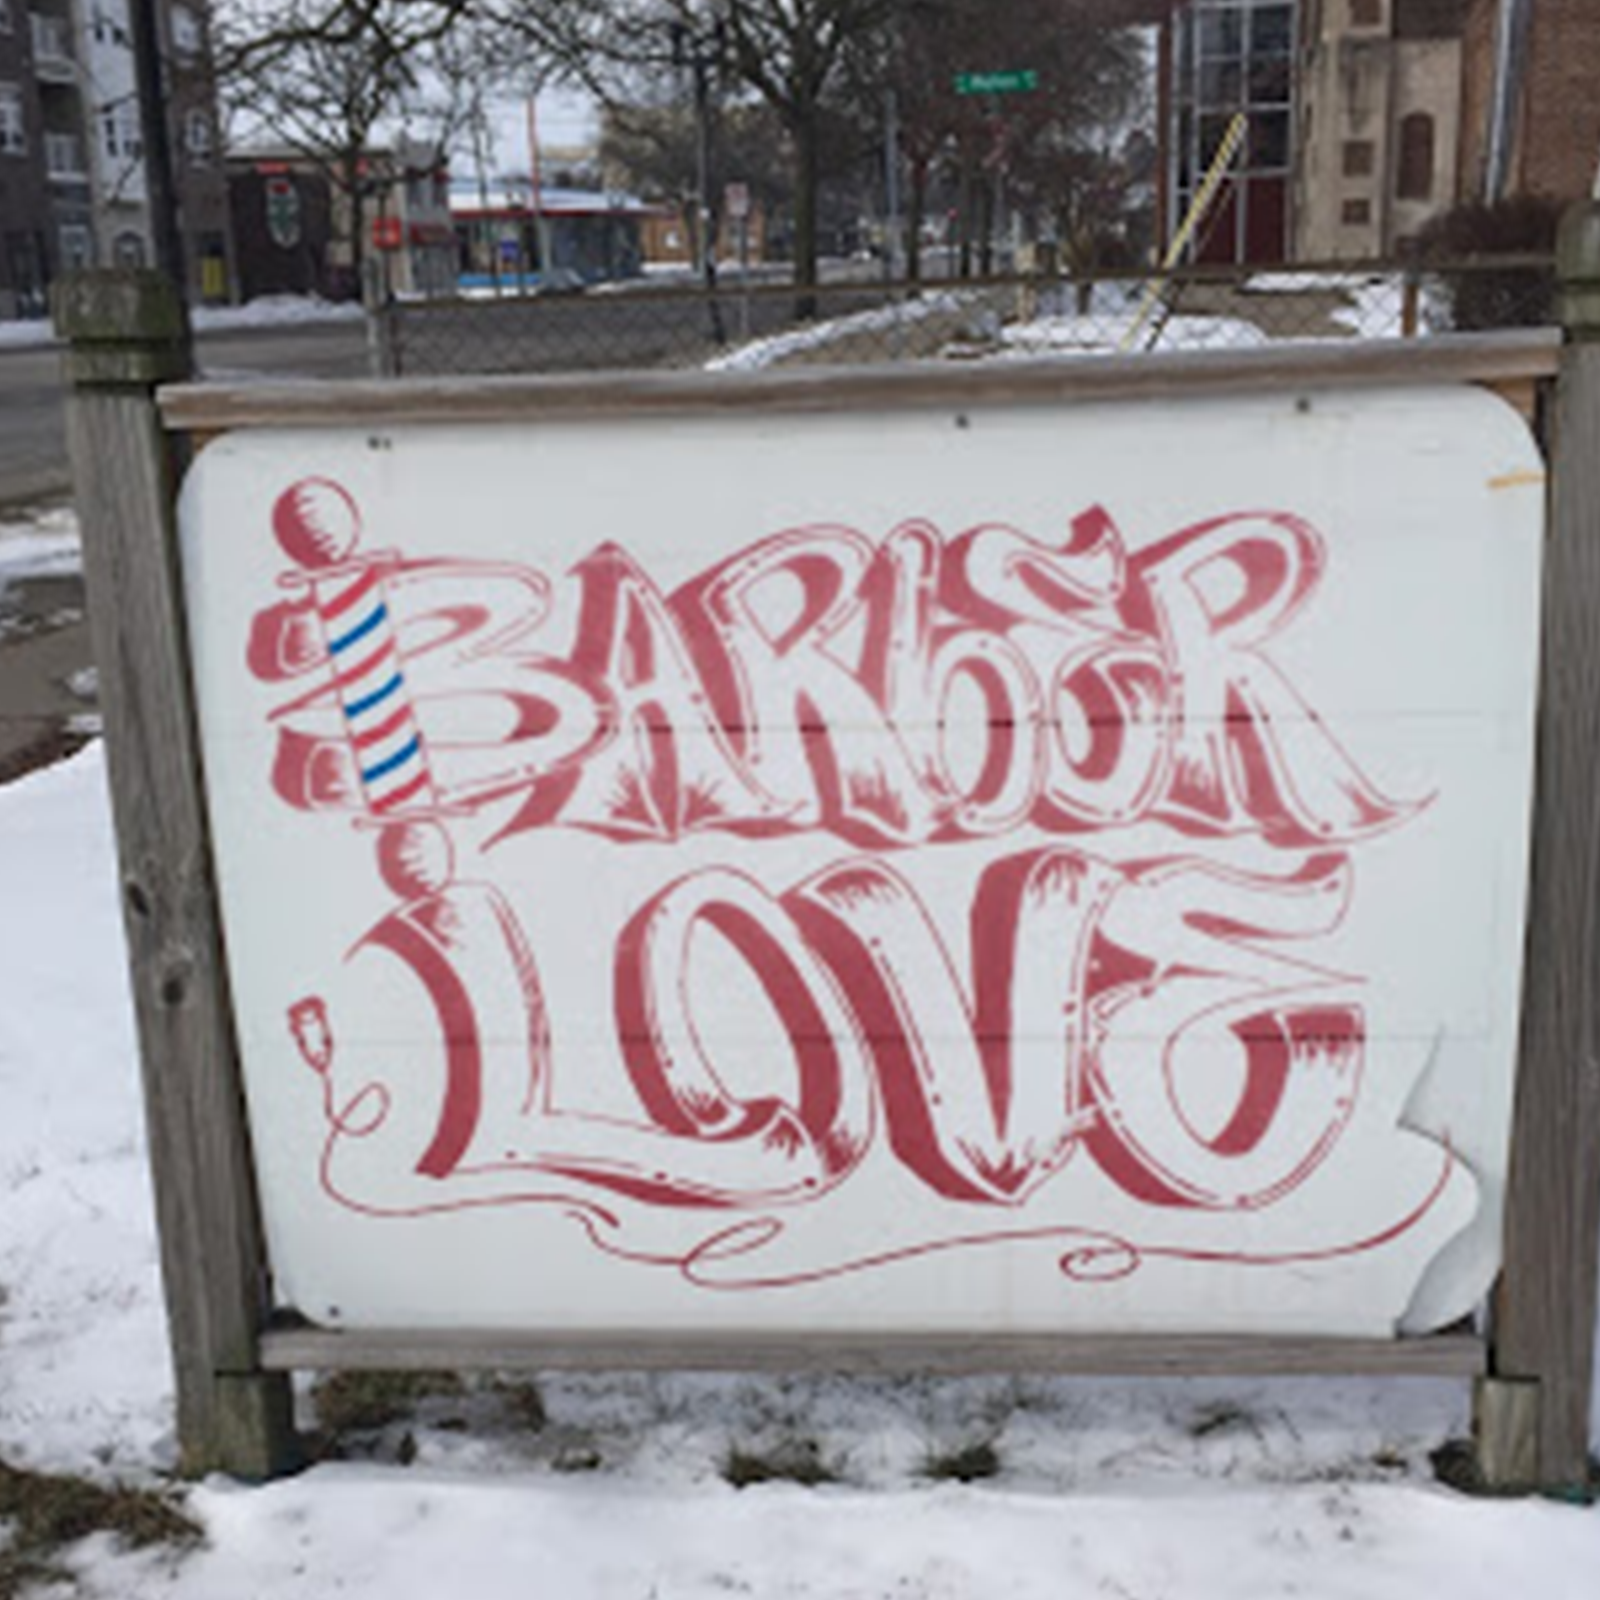 BARBER
LOVE